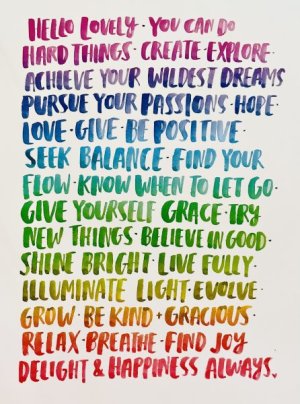 HELLO LOVELY · YOU CAN DO
HARD THINGS · CREATE · EXPLORE ·
ACHIEVE YOUR WILDEST DREAMS
PURSUE YOUR PASSIONS · HOPE ·
LOVE · GIVE · BE POSITIVE ·
SEEK BALANCE · FIND YOUR
FLOW · KNOW WHEN TO LET GO ·
GIVE YOURSELF GRACE · TRY
NEW THINGS · BELIEVE IN GOOD ·
SHINE BRIGHT · LIVE FULLY ·
ILLUMINATE LIGHT · EVOLVE ·
GROW · BE KIND + GRACIOUS ·
RELAX · BREATHE · FIND JOY
DELIGHT & HAPPINESS ALWAYS.♥